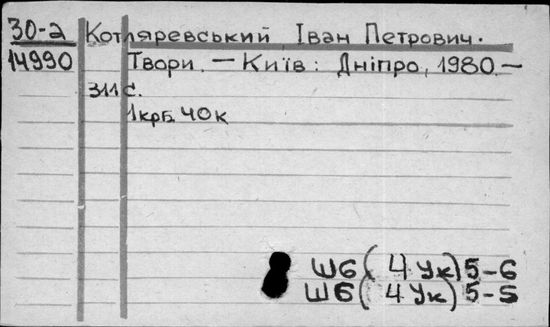 30-а Котляревський Іван Петрович.
14990 Твори. — Київ: Дніпро, 1980. —
311 с.
1крб. 40к
Ш6(4Ук)5-6
Ш6(4Ук)5-5